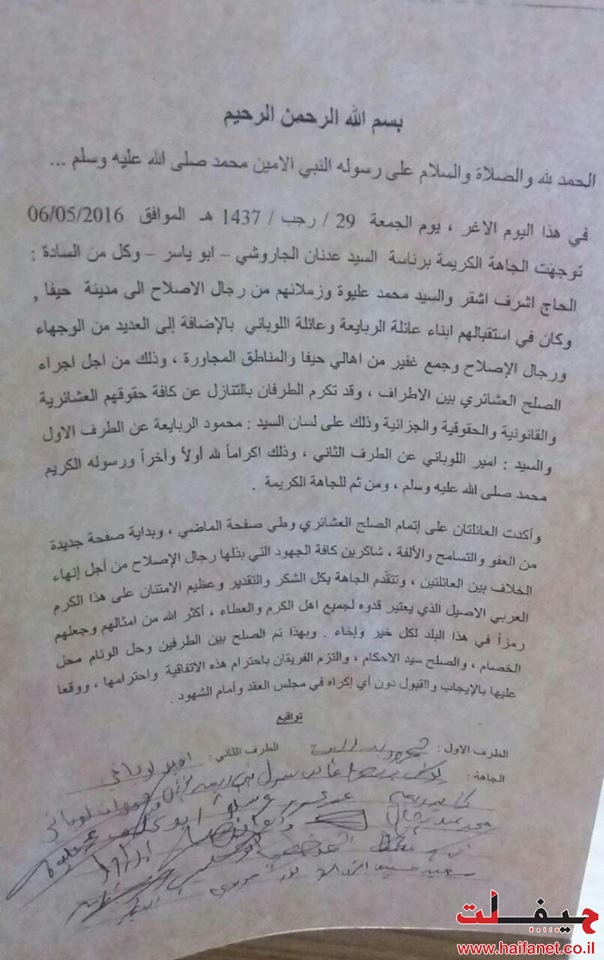 بسم الله الرحمن الرحيم
الحمد لله والصلاة والسلام على رسوله النبي الامين محمد صلى الله عليه وسلم ...
في هذا اليوم الاغر ، يوم الجمعة 29 / رجب / 1437 هـ الموافق 06/05/2016
توجهت الجاهة الكريمة برئاسة السيد عدنان الجاروشي – ابو ياسر – وكل من السادة :
الحاج اشرف اشقر والسيد محمد عليوة وزملائهم من رجال الاصلاح الى مدينة حيفا ,
وكان في استقبالهم ابناء عائلة الربايعة وعائلة اللوباني بالإضافة إلى العديد من الوجهاء
ورجال الإصلاح وجمع غفير من اهالي حيفا والمناطق المجاورة ، وذلك من اجل اجراء
الصلح العشائري بين الاطراف ، وقد تكرم الطرفان بالتنازل عن كافة حقوقهم العشائرية
والقانونية والحقوقية والجزائية وذلك على لسان السيد : محمود الربايعة عن الطرف الاول
والسيد : امير اللوباني عن الطرف الثاني ، وذلك اكراماً لله أولاً وآخراً ورسوله الكريم
محمد صلى الله عليه وسلم ، ومن ثم للجاهة الكريمة .
وأكدت العائلتان على إتمام الصلح العشائري وطي صفحة الماضي ، وبداية صفحة جديدة
من العفو والتسامح والألفة ، شاكرين كافة الجهود التي بذلها رجال الإصلاح من أجل إنهاء
الخلاف بين العائلتين ، وتتقدم الجاهة بكل الشكر والتقدير وعظيم الامتنان على هذا الكرم
العربي الاصيل الذي يعتبر قدوه لجميع اهل الكرم والعطاء ، أكثر الله من امثالهم وجعلهم
رمزاً في هذا البلد لكل خير وإخاء . وبهذا تم الصلح بين الطرفين وحل الوئام محل
الخصام ، والصلح سيد الاحكام ، والتزم الفريقان باحترام هذه الاتفاقية واحترامها ، ووقعا
عليها بالإيجاب والقبول دون أي إكراه في مجلس العقد وأمام الشهود .
تواقيع
الطرف الاول : الطرف الثاني : امير لوباني
الجاهة :
حيفا نت
www.haifanet.co.il